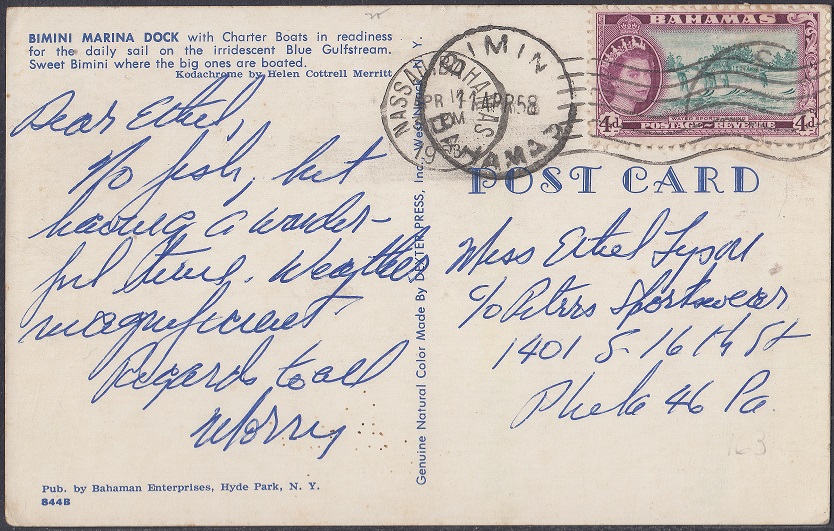 BIMINI MARINA DOCK with Charter Boats in readiness
for the daily sail on the irridescent Blue Gulfstream.
Sweet Bimini where the big ones are boated.
Kodachrome by Helen Cottrell Merritt
Dear Ethel,
No fish, but
having a wonder-
ful time. Weather
magnificent
Regards to all
Morry
Pub. by Bahaman Enterprises, Hyde Park, N. Y.
844B
Genuine Natural Color Made By DEXTER PRESS, Inc. West Nyack, N. Y.
NASSAU BAHAMAS
APR
PM
1958
BIMINI
11 APR 58
BAHAMAS
BAHAMAS
4d 4d
POSTAGE REVENUE
POST CARD
Miss Ethel Tyson
c/o Peters Sportswear
1401 S. 16th St
Phila 46 Pa.
163